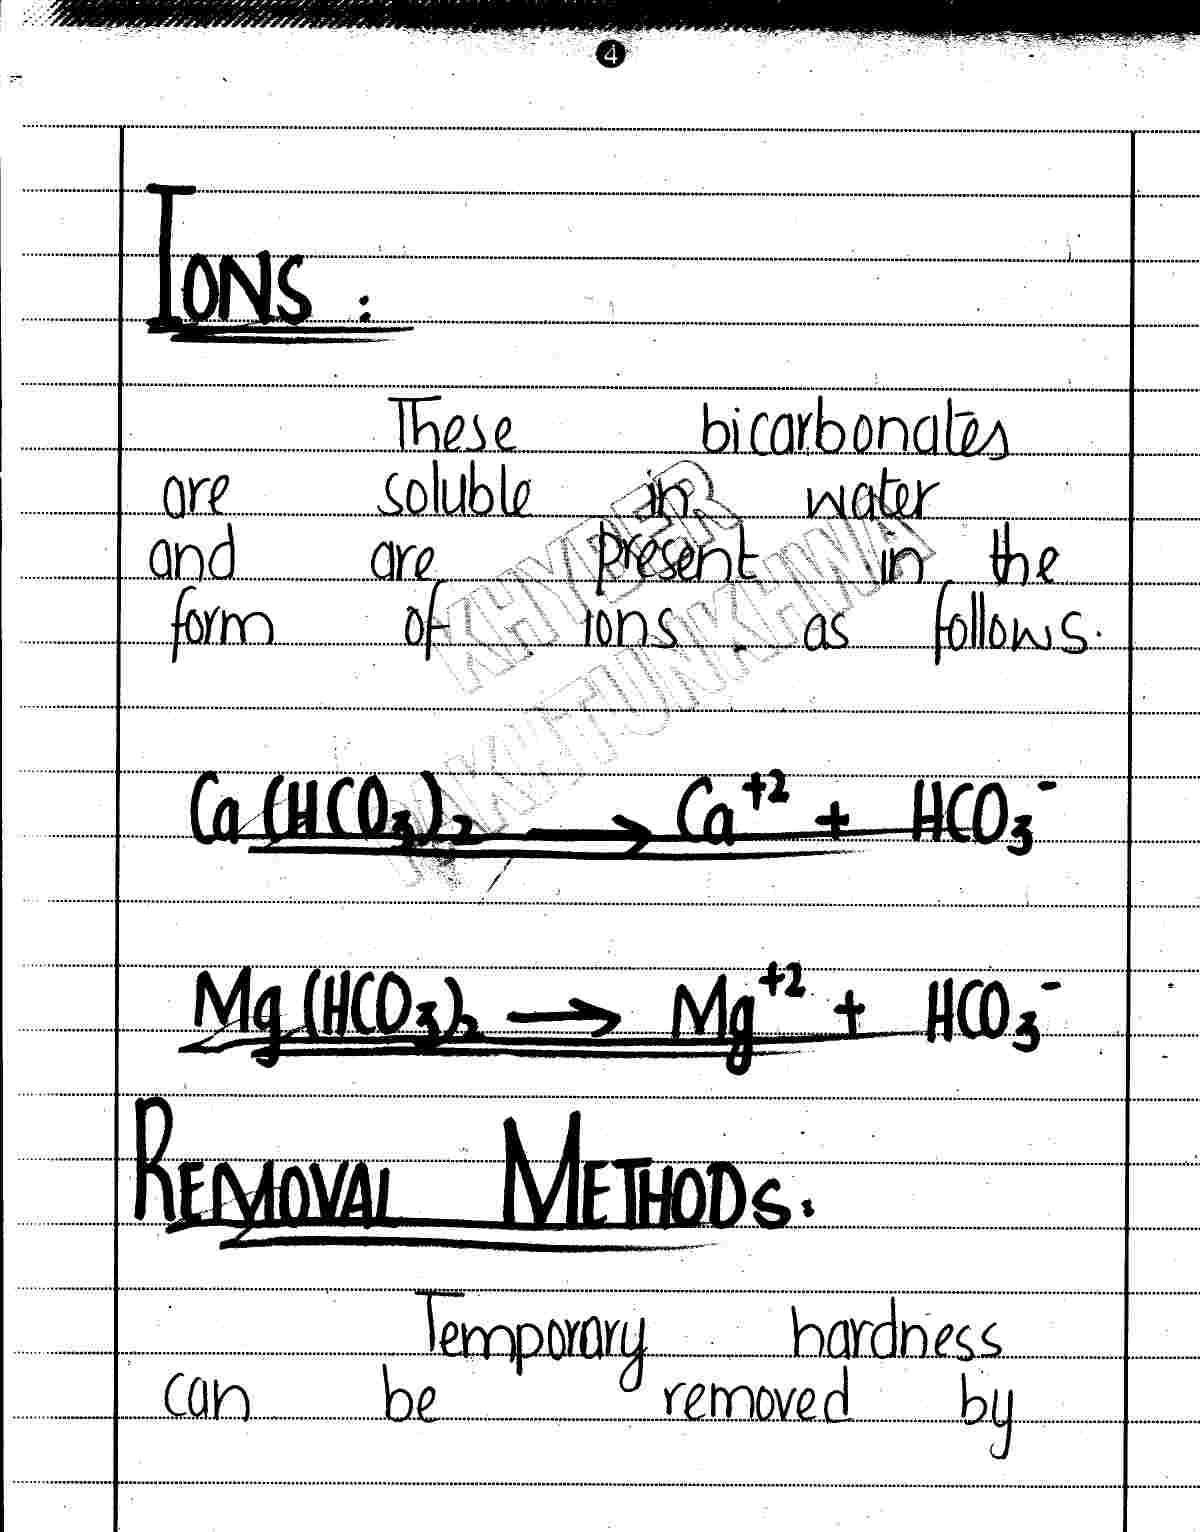 4
IONS :
These bicarbonates
are soluble in water
and are present in the
form of ions as follows.
Ca(HCO₃)₂ → Ca⁺² + HCO₃⁻
Mg(HCO₃)₂ → Mg⁺² + HCO₃⁻
REMOVAL METHODS.
Temporary hardness
can be removed by
KHYBER
PAKHTUNKHWA